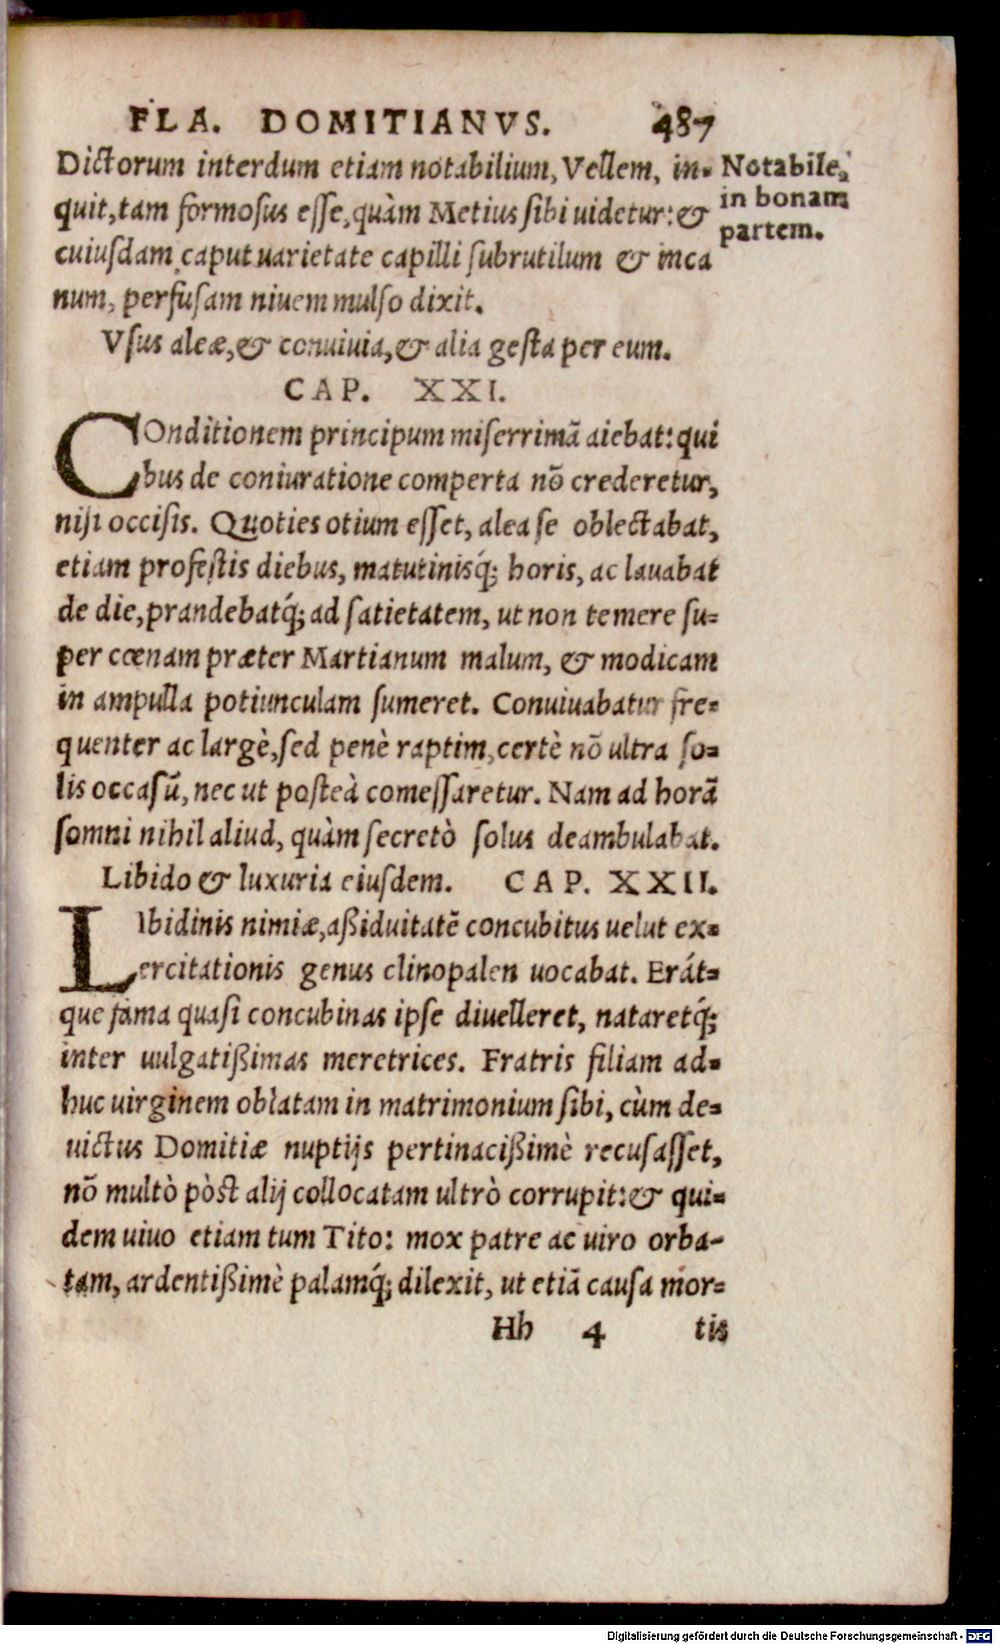 FLA. DOMITIANVS. 487
Dictorum interdum etiam notabilium, Vellem, in-
quit, tam formosus esse, quàm Metius sibi uidetur: &
cuiusdam caput uarietate capilli subrutilum & inca
num, perfusam niuem mulso dixit.
Notabile,
in bonam
partem.
Vsus aleæ, & conuiuia, & alia gesta per eum.
CAP. XXI.
COnditionem principum miserrimā aiebat: qui
bus de coniuratione comperta nō crederetur,
nisi occisis. Quoties otium esset, alea se oblectabat,
etiam profestis diebus, matutinisq́; horis, ac lauabat
de die, prandebatq́; ad satietatem, ut non temere su-
per cœnam præter Martianum malum, & modicam
in ampulla potiunculam sumeret. Conuiuabatur fre-
quenter ac largè, sed penè raptim, certè nō ultra so-
lis occasū, nec ut posteà comessaretur. Nam ad horā
somni nihil aliud, quàm secretò solus deambulabat.
Libido & luxuria eiusdem. CAP. XXII.
LIbidinis nimiæ, aßiduitatē concubitus uelut ex-
ercitationis genus clinopalen uocabat. Erát-
que fama quasi concubinas ipse diuelleret, nataretq́;
inter uulgatißimas meretrices. Fratris filiam ad-
huc uirginem oblatam in matrimonium sibi, cùm de-
uictus Domitiæ nuptijs pertinacißimè recusasset,
nō multò pòst alij collocatam ultrò corrupit: & qui-
dem uiuo etiam tum Tito: mox patre ac uiro orba-
tam, ardentißimè palamq́; dilexit, ut etiā causa mor-
Hh 4 tis
Digitalisierung gefördert durch die Deutsche Forschungsgemeinschaft - DFG